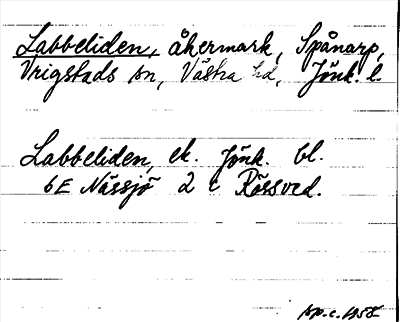 Labbeliden, åkermark, Spånarp,
Vrigstads sn, Västra hd, Jönk. l.
Labbeliden, ek. Jönk. bl.
6E Nässjö 2 c Rössved.